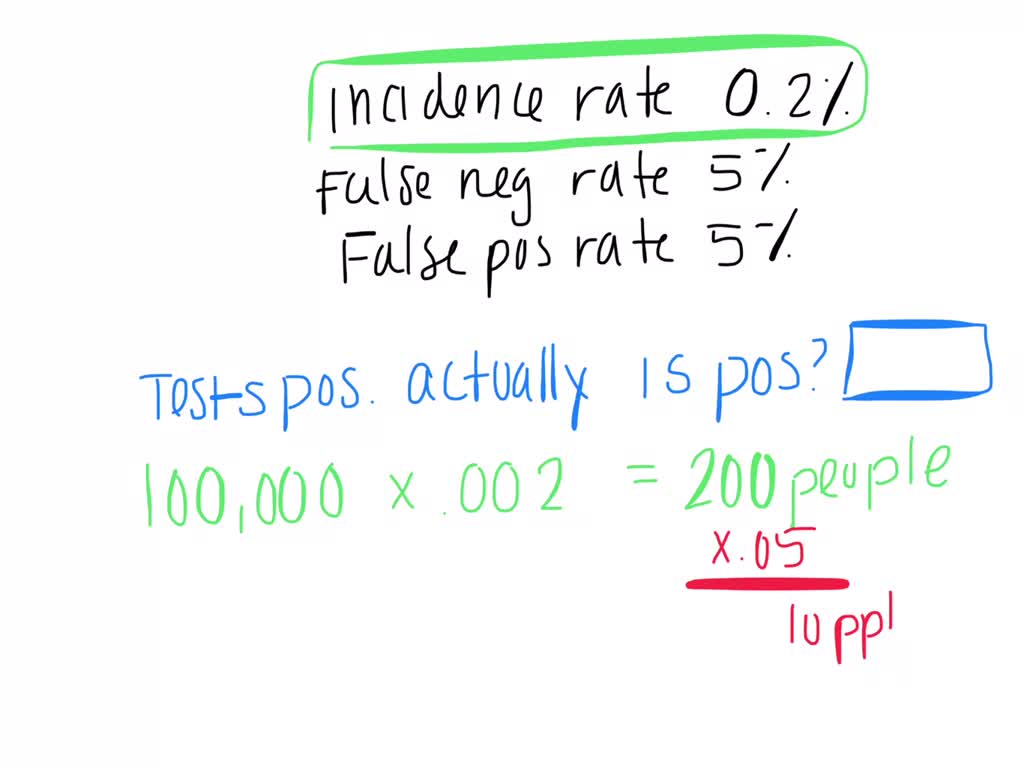 Incidence rate 0.2%
False neg rate 5%
False pos rate 5%
Tests pos. actually is pos?
100,000 x .002 = 200 people
x.05
10 ppl